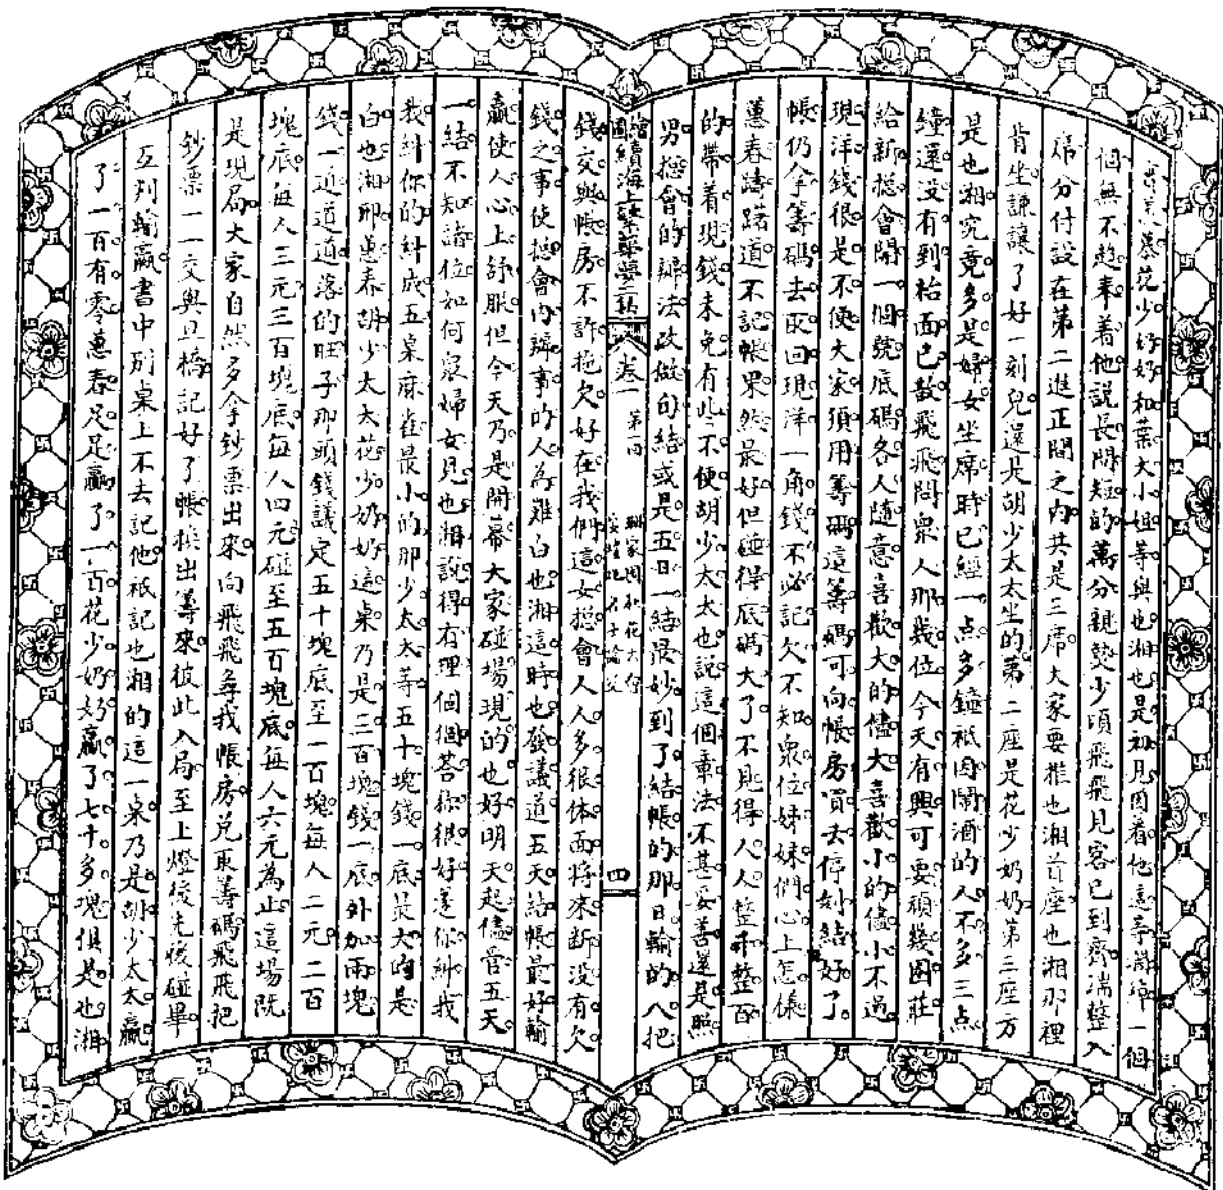 慕花少奶奶和葉大小姐等與也湘也是初見因看他這等一個
個無不趨奉着他說長問短的萬分親熱少頃飛飛見客已到齊端整入
席分付設在第二進正間之内共是三席大家要推也湘首座也湘那裡
肯坐謙讓了好一刻兒還是胡少太太坐的第二座是花少奶奶第三座方
是也湘究竟多是婦女坐席時已經一点多鐘祇因鬧酒的人不多三点
鐘還没有到枱面已散飛飛問衆人那幾位今天有興可要頑幾圈莊
給新揔會開一個號底碼各人隨意喜歡大的儘大喜歡小的儘小不過
現洋錢很是不便大家須用籌碼這籌碼可向帳房買去停刻結好了
帳仍拿籌碼去取回現洋一角錢不必記欠不知衆位姊妹們心上怎樣
蕙春躊躇道不記帳果然最好但碰得底碼大了不見得人人整千整百
的帶着現錢未免有些不便胡少太太也說這個章法不甚妥善還是照
男揔會的辦法改做旬結或是五日一結最妙到了結帳的那日輸的人把
繪圖續海上繁華夢二集 卷一 第一回 四
錢交與帳房不許拖欠好在我們這女揔會人人多很体面將來断没有欠
錢之事使揔會内辦事的人為難白也湘這時也發議道五天結帳最好輸
贏使人心上舒服但今天乃是開幕大家碰場現的也好明天起儘管五天
一結不知諸位如何衆婦女見也湘說得有理個個荅稱很好遂你糾我
我糾你的糾成五桌麻雀最小的那少太太等五十塊錢一底最大的是
白也湘耶蕙春胡少太太花少奶奶這桌乃是三百塊錢一底外加兩塊
錢一道道道落的旺子那頭錢議定五十塊底至一百塊每人二元二百
塊底每人三元三百塊底每人四元碰至五百塊底每人六元為止這場既
是現局大家自然多拿鈔票出來向飛飛尋我帳房兑換籌碼飛飛把
鈔票一一交與旦橋記好了帳換出籌來彼此入局至上燈後先後碰畢
互判輸贏書中别桌上不去記他祇記也湘的這一桌乃是胡少太太贏
了一百有零蕙春足足贏了一百花少奶奶贏了七十多塊俱是也湘